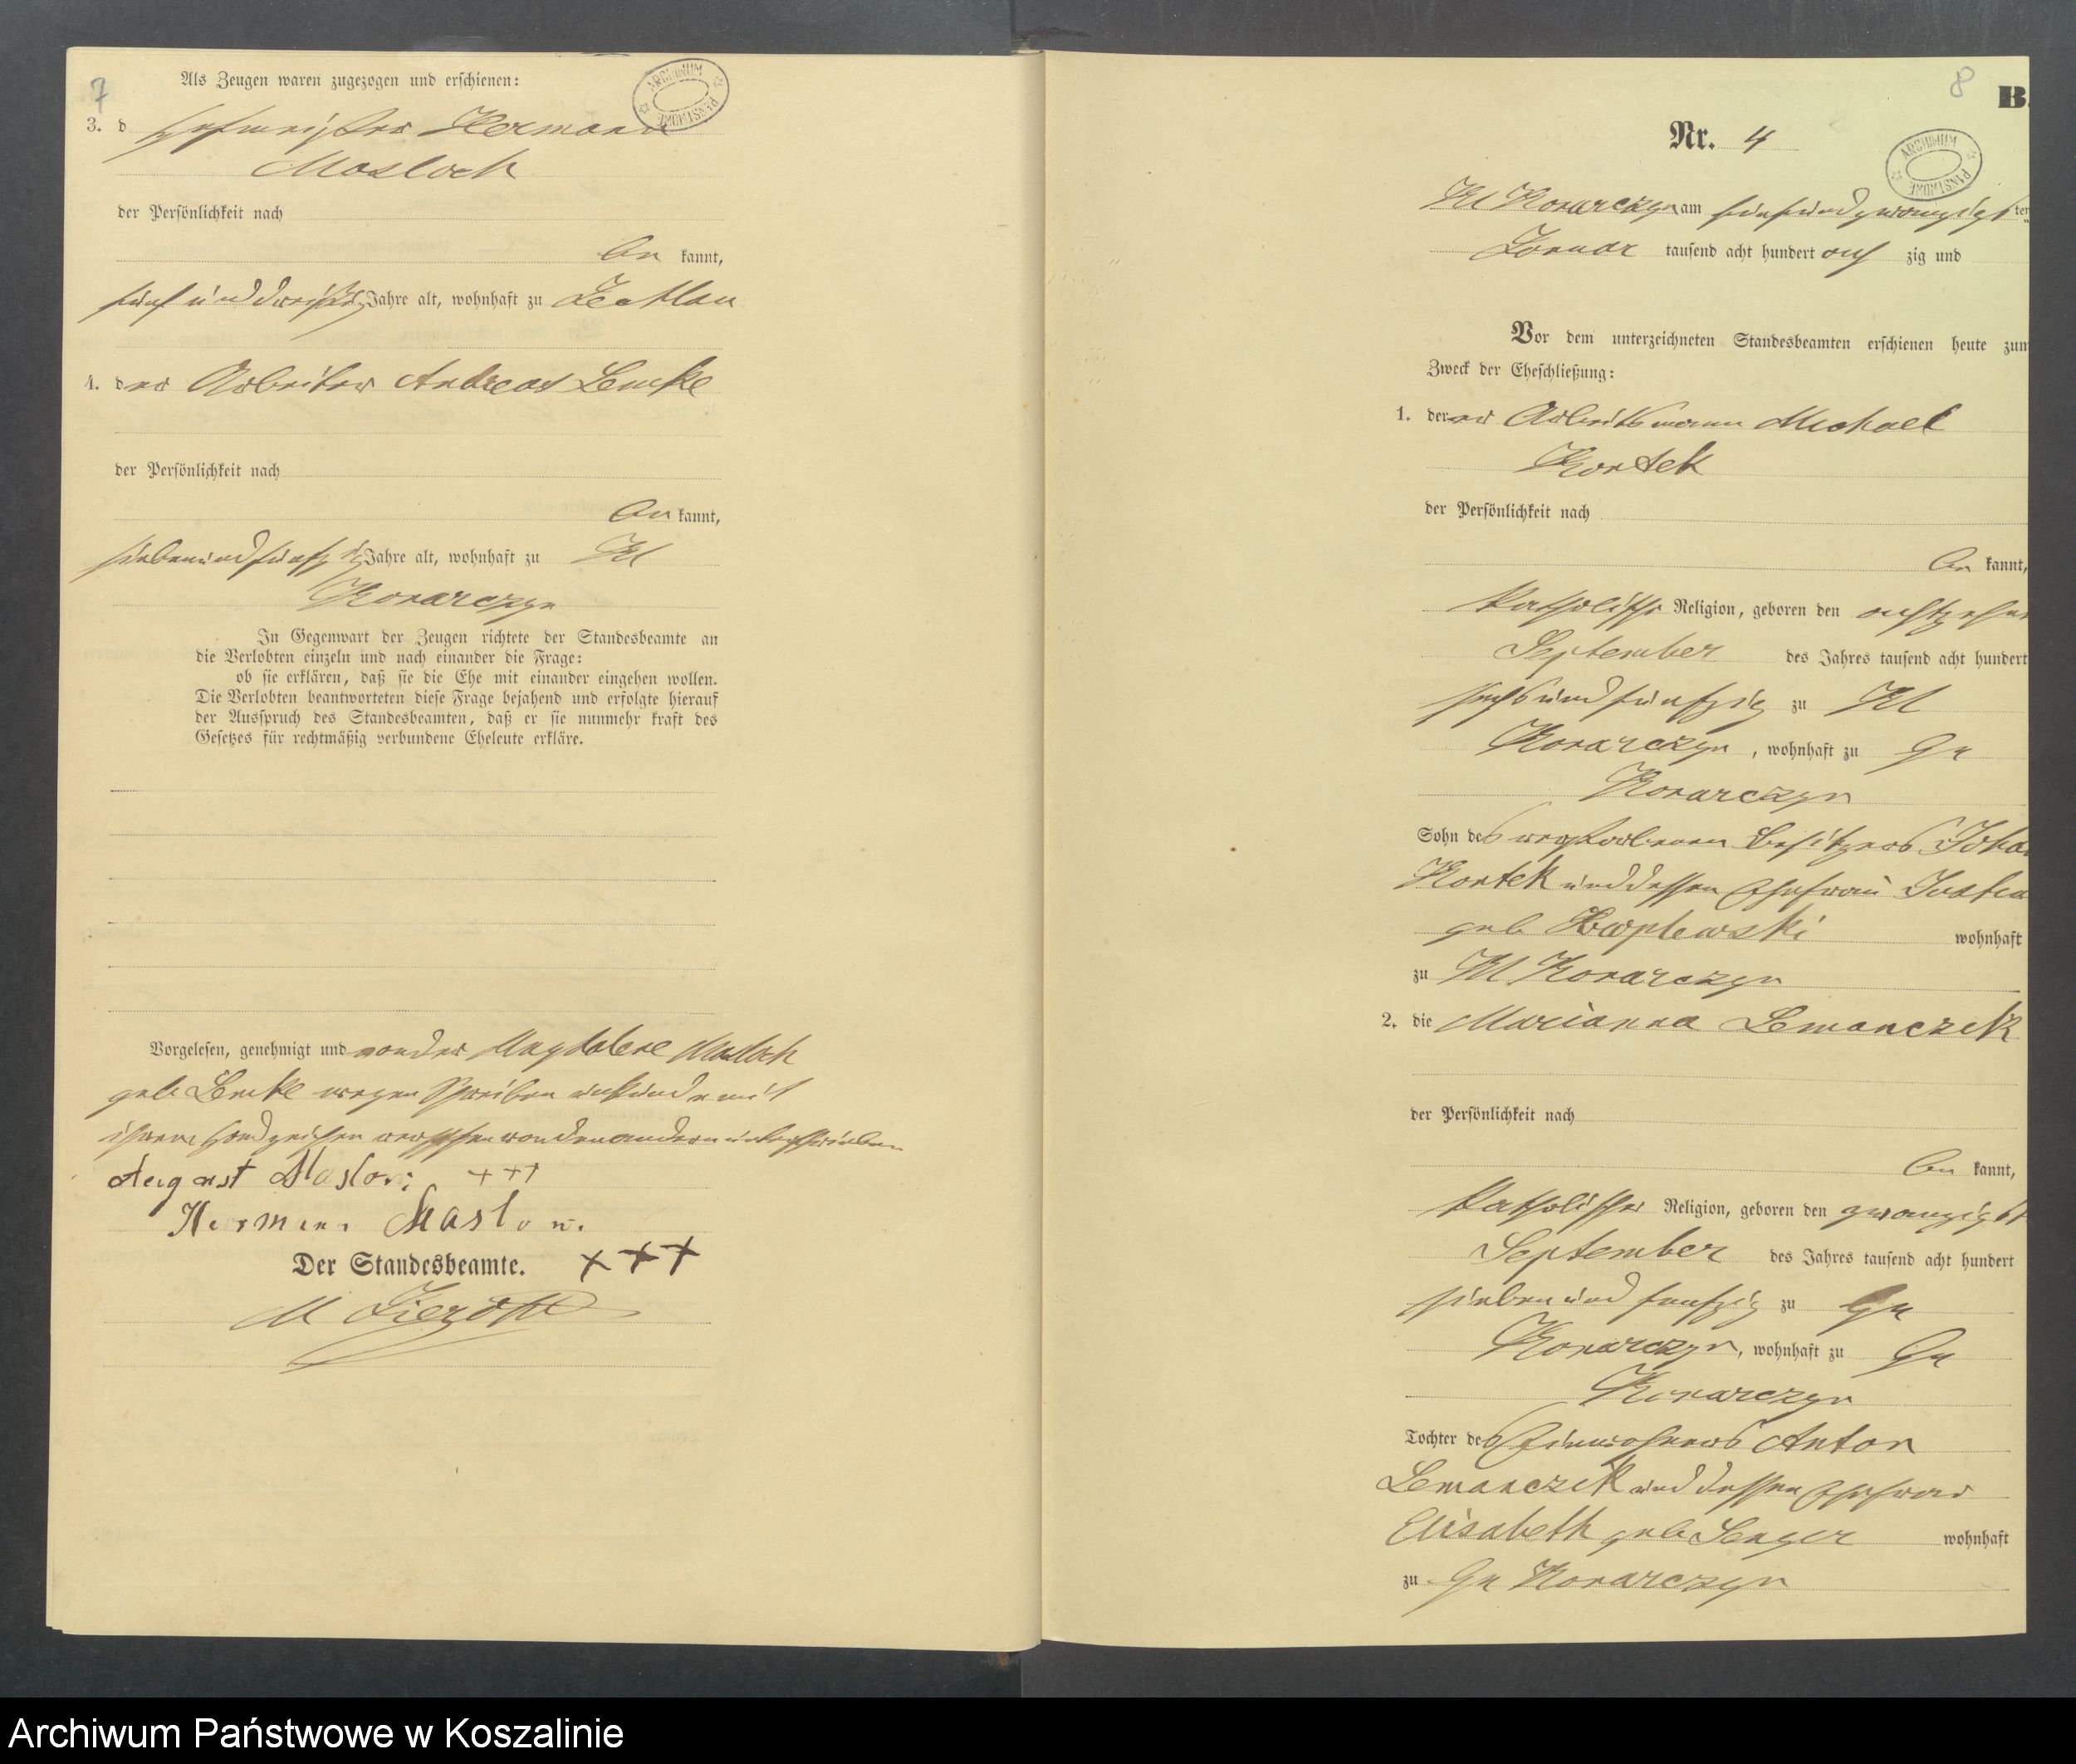 7
Als Zeugen waren zugezogen und erschienen:
ARCHIWUM PAŃSTWOWE
3. d Hofmeister Hermann
Masloch
der Persönlichkeit nach
be kannt,
fünf und dreißig Jahre alt, wohnhaft zu
4. der Arbeiter Andreas Lemke
der Persönlichkeit nach
be kannt,
siebenundfünfzig Jahre alt, wohnhaft zu Kl
Konarczyn
In Gegenwart der Zeugen richtete der Standesbeamte an
die Verlobten einzeln und nach einander die Frage:
ob sie erklären, daß sie die Ehe mit einander eingehen wollen.
Die Verlobten beantworteten diese Frage bejahend und erfolgte hierauf
der Ausspruch des Standesbeamten, daß er sie nunmehr kraft des
Gesetzes für rechtmäßig verbundene Eheleute erkläre.
Vorgelesen, genehmigt und von der Magdalene Masloch
geb Lemke wegen Schreibensunkunde mit
ihrem Handzeichen versehen von den andern unterschrieben
August +++
Herman
Der Standesbeamte. +++
M
8
B.
Nr. 4
ARCHIWUM PAŃSTWOWE
Kl Konarczyn am fünfundzwanzigsten
Januar tausend acht hundert acht zig und
Vor dem unterzeichneten Standesbeamten erschienen heute zum
Zweck der Eheschließung:
1. der Arbeitsmann Michael
Kortek
der Persönlichkeit nach
be kannt,
katholischer Religion, geboren den achtzehnten
September des Jahres tausend acht hundert
sechsundfünfzig zu Kl
Konarczyn, wohnhaft zu Gr
Konarczyn
Sohn des verstorbenen Besitzers Johan
Kortek und dessen Ehefrau
geb wohnhaft
zu Kl Konarczyn
2. die Marianna Lemanczik
der Persönlichkeit nach
be kannt,
katholischer Religion, geboren den zwanzigsten
September des Jahres tausend acht hundert
siebenundfünfzig zu Gr
Konarczyn, wohnhaft zu Gr
Konarczyn
Tochter des Einwohners Anton
Lemanczik und dessen Ehefrau
Elisabeth geb Senger wohnhaft
zu Gr Konarczyn
Archiwum Państwowe w Koszalinie